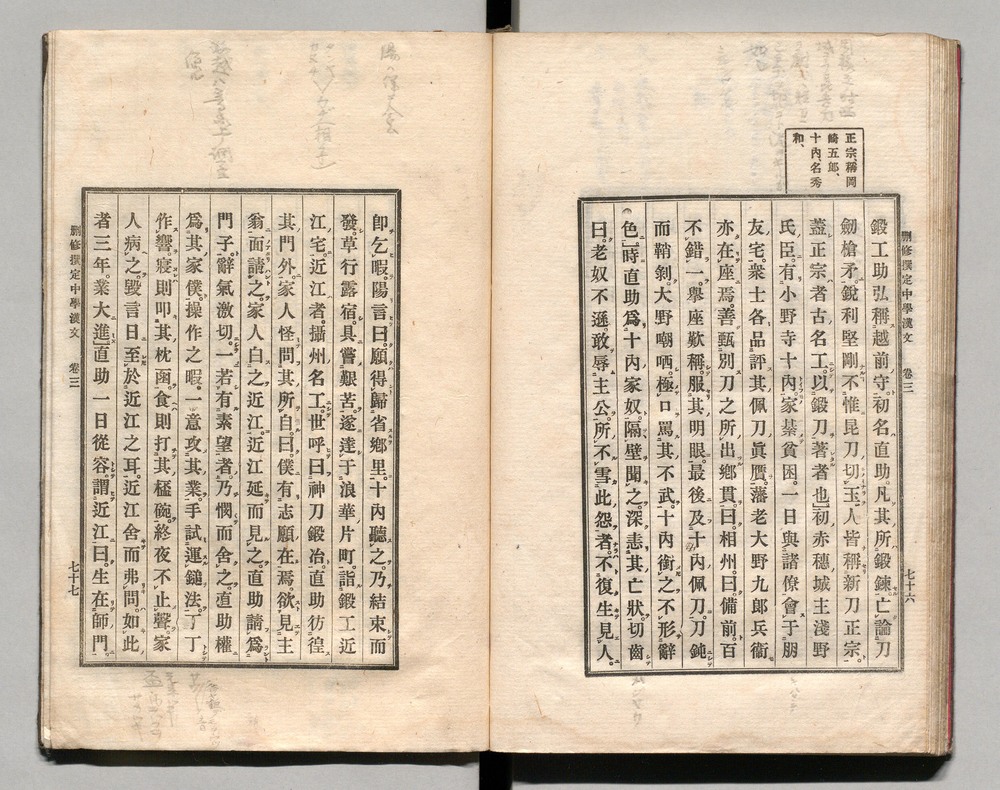 正宗、稱岡
崎五郎、
十內名秀
和、
刪修撰定中學漢文 卷三 七十六
鍛工助弘稱越前守。初名直助。凡其所鍛鍊。亡論刀
劒槍矛。銳利堅剛。不惟昆刀切玉。人皆稱新刀正宗。
蓋正宗者古名工。以鍛刀著者也。初赤穗城主淺野
氏臣。有小野寺十內。家綦貧困。一日與諸僚會于朋
友宅。衆士各品評其佩刀眞贋。藩老大野九郎兵衞
亦在座焉。善甄別刀之所出鄕貫。曰相州。曰備前。百
不錯一。擧座歎稱。服其明眼。最後及十內佩刀。刀鈍
而鞘剝。大野嘲哂。極口罵其不武。十內銜之不形辭
色。時直助爲十內家奴。隔壁聞之。深恚其亡狀。切齒
曰。老奴不遜。敢辱主公。所不雪此怨者。不復生見人。
卽乞暇。陽言曰。願得歸省鄕里。十內聽之。乃結束而
發。草行露宿。具嘗艱苦。遂達于浪華片町。詣鍛工近
江宅。近江者。攝州名工。世呼曰神刀鍛冶。直助彷徨
其門外。家人怪問其所自。曰。僕有志願在焉。欲見主
翁面請之。家人白之近江。近江延而見之。直助請爲
門子。辭氣激切。一若有素望者。乃憫而舍之。直助權
爲其家僕。操作之暇。一意攻其業。手試運鎚法。丁丁
作響。寢則叩其枕函。食則打其榼碗。終夜不止聲。家
人病之。毀言日至於近江之耳。近江舍而弗問。如此
者三年。業大進。直助一日從容謂近江曰。生在師門。
刪修撰定中學漢文 卷三 七十七